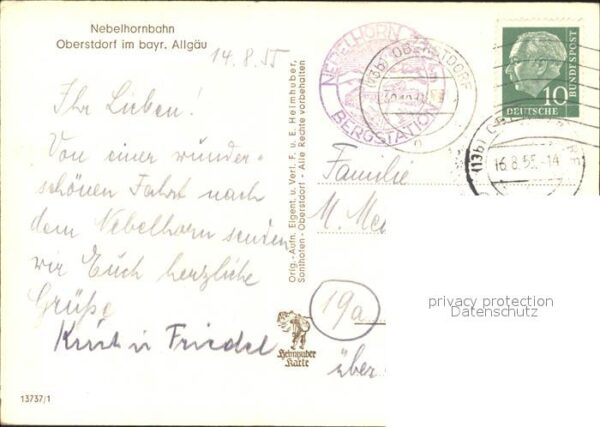 Nebelhornbahn
Oberstdorf im bayr. Allgäu
14.8.55
Ihr Lieben!
Von einer wunder-
schönen Fahrt nach
dem Nebelhorn senden
wir Euch herzliche
Grüße
Kurt u Friedel
13737/1
Orig.-Aufn. Eigent. u. Verl. F. u. E. Heimhuber,
Sonthofen - Oberstdorf - Alle Rechte vorbehalten
NEBELHORN
BERGSTATION
(13b) OBERSTDORF
10
DEUTSCHE
BUNDESPOST
(13b)
16.8.55.-14
Familie
M. Me
19a
über
Heimhuber
Karte
privacy protection
Datenschutz